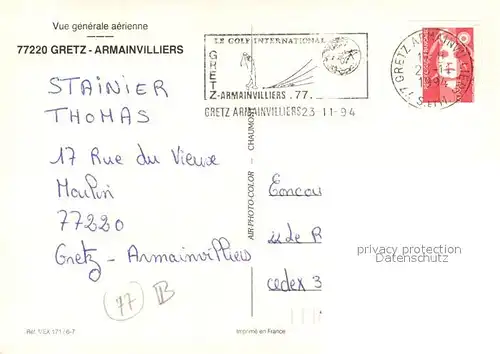 Vue générale aérienne
77220 GRETZ - ARMAINVILLIERS
LE GOLF INTERNATIONAL
GRETZ-ARMAINVILLIERS . 77.
GRETZ ARMAINVILLIERS 23-11-94
77 GRETZ ARMAINVILLIERS
1994
S. ET M.
STAINIER
THOMAS
17 Rue du Vieux
Moulin
77220
Gretz - Armainvilliers
77 B
AIR PHOTO-COLOR - CHAUMONT
Concou
de R
cedex 3
privacy protection
Datenschutz
Réf. VEX 171 / 6-7
Imprimé en France